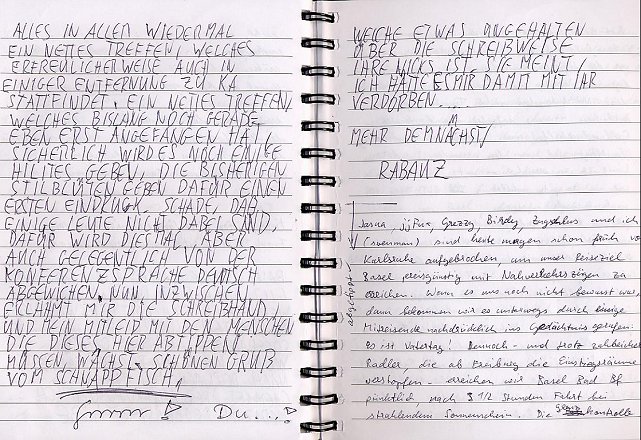 ALLES IN ALLEM WIEDERMAL
EIN NETTES TREFFEN, WELCHES
ERFREULICHERWEISE AUCH IN
EINIGER ENTFERNUNG ZU KA
STATTFINDET. EIN NETTES TREFFEN,
WELCHES BISLANG NOCH GERADE
EBEN ERST ANGEFANGEN HAT,
SICHERLICH WIRD ES NOCH EINIGE
HILITES GEBEN, DIE BISHERIGEN
STILBLÜTEN GEBEN DAFÜR EINEN
ERSTEN EINDRUCK. SCHADE, DAß
EINIGE LEUTE NICHT DABEI SIND,
DAFÜR WIRD DIESMAL ABER
AUCH GELEGENTLICH VON DER
KONFERENZSPRACHE DEUTSCH
ABGEWICHEN. NUN, INZWISCHEN
ERLAHMT MIR DIE SCHREIBHAND,
UND MEIN MITLEID MIT DEN MENSCHEN
DIE DIESES HIER ABTIPPEN
MÜSSEN, WÄCHST. SCHÖNEN GRUß
VOM SCHNAPPFISCH,
Du...!
WELCHE ETWAS UNGEHALTEN
ÜBER DIE SCHREIBWEISE
IHRE NICKS IST. SIE MEINT,
ICH HÄTTE ES MIR DAMIT MIT IHR
VERDORBEN....
MEHR DEMNÄCHST,
RABAUZ
abgetippt
Grezzy, Birdy, und ich
sind heute morgen schon früh
Karlsruhe aufgebrochen um unser Reiseziel
Basel preisgünstig mit Nahverkehrszügen zu
erreichen. Wenn es uns noch nicht bewusst war,
dann bekommen wir es unterwegs durch einige
Mitreisende nachdrücklich ins Gedächtnis gerufen:
es ist Vatertag! Dennoch - und trotz zahlreicher
Radler, die ab Freiburg die Einstiegsräume
verstopfen - erreichen wir Basel Bad Bf
pünktlich nach 3 1/2 Stunden Fahrt bei
strahlendem Sonnenschein. Die Grenzkontrolle